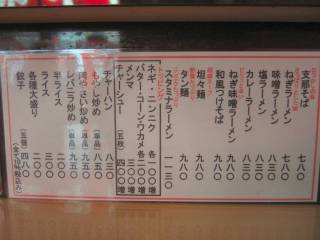 支那そば 七八〇
ねぎラーメン 七八〇
味噌ラーメン 七八〇
塩ラーメン 七八〇
カレーラーメン 九五〇
ねぎ味噌ラーメン 九八〇
和風つけそば 九八〇
坦々麺 九八〇
タン麺 九八〇
スタミナラーメン 一一三〇
トッピング
ネギ・ニンニク 各一〇〇増
バター・コーン・ワカメ 各二〇〇増
メンマ 三〇〇増
チャーシュー（五枚） 四〇〇増
チャーハン 八三〇
もやし炒め（単品） 八五〇
肉やさい炒め（単品） 九五〇
レバニラ炒め（単品） 九五〇
半ライス 二〇〇
ライス 三〇〇
各種大盛り 二〇〇
餃子（五個） 四八〇
（全て内税込み）